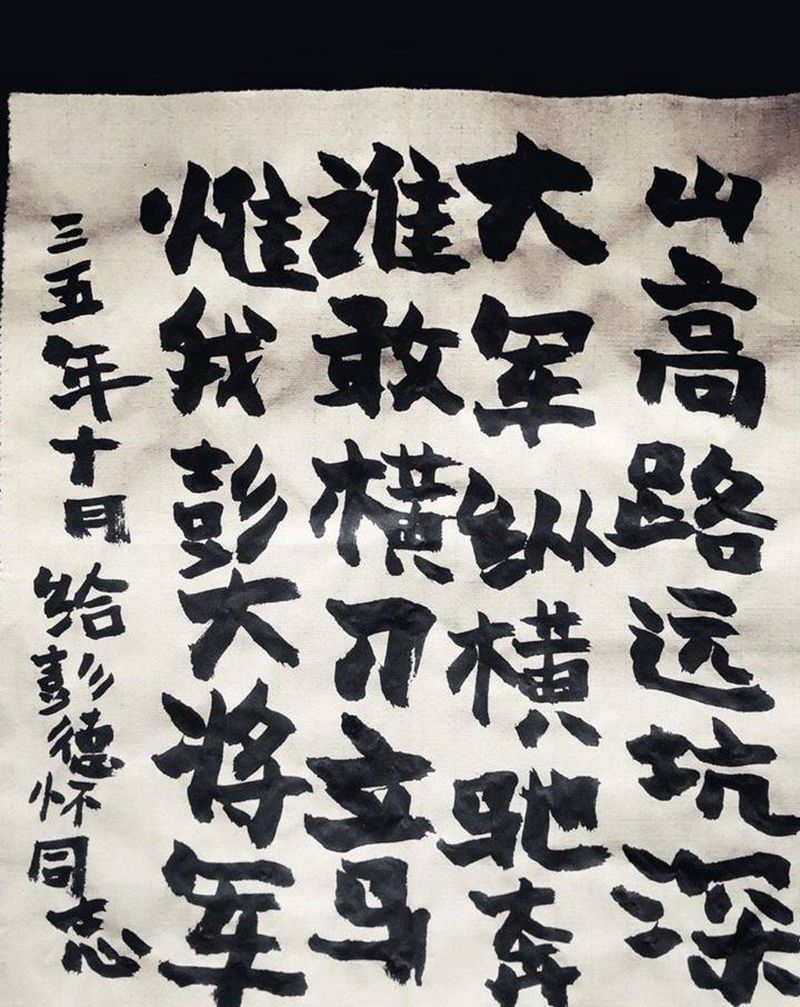 山高路远坑深
大军纵横驰奔
谁敢横刀立马
惟我彭大将军
三五年十月给彭德怀同志